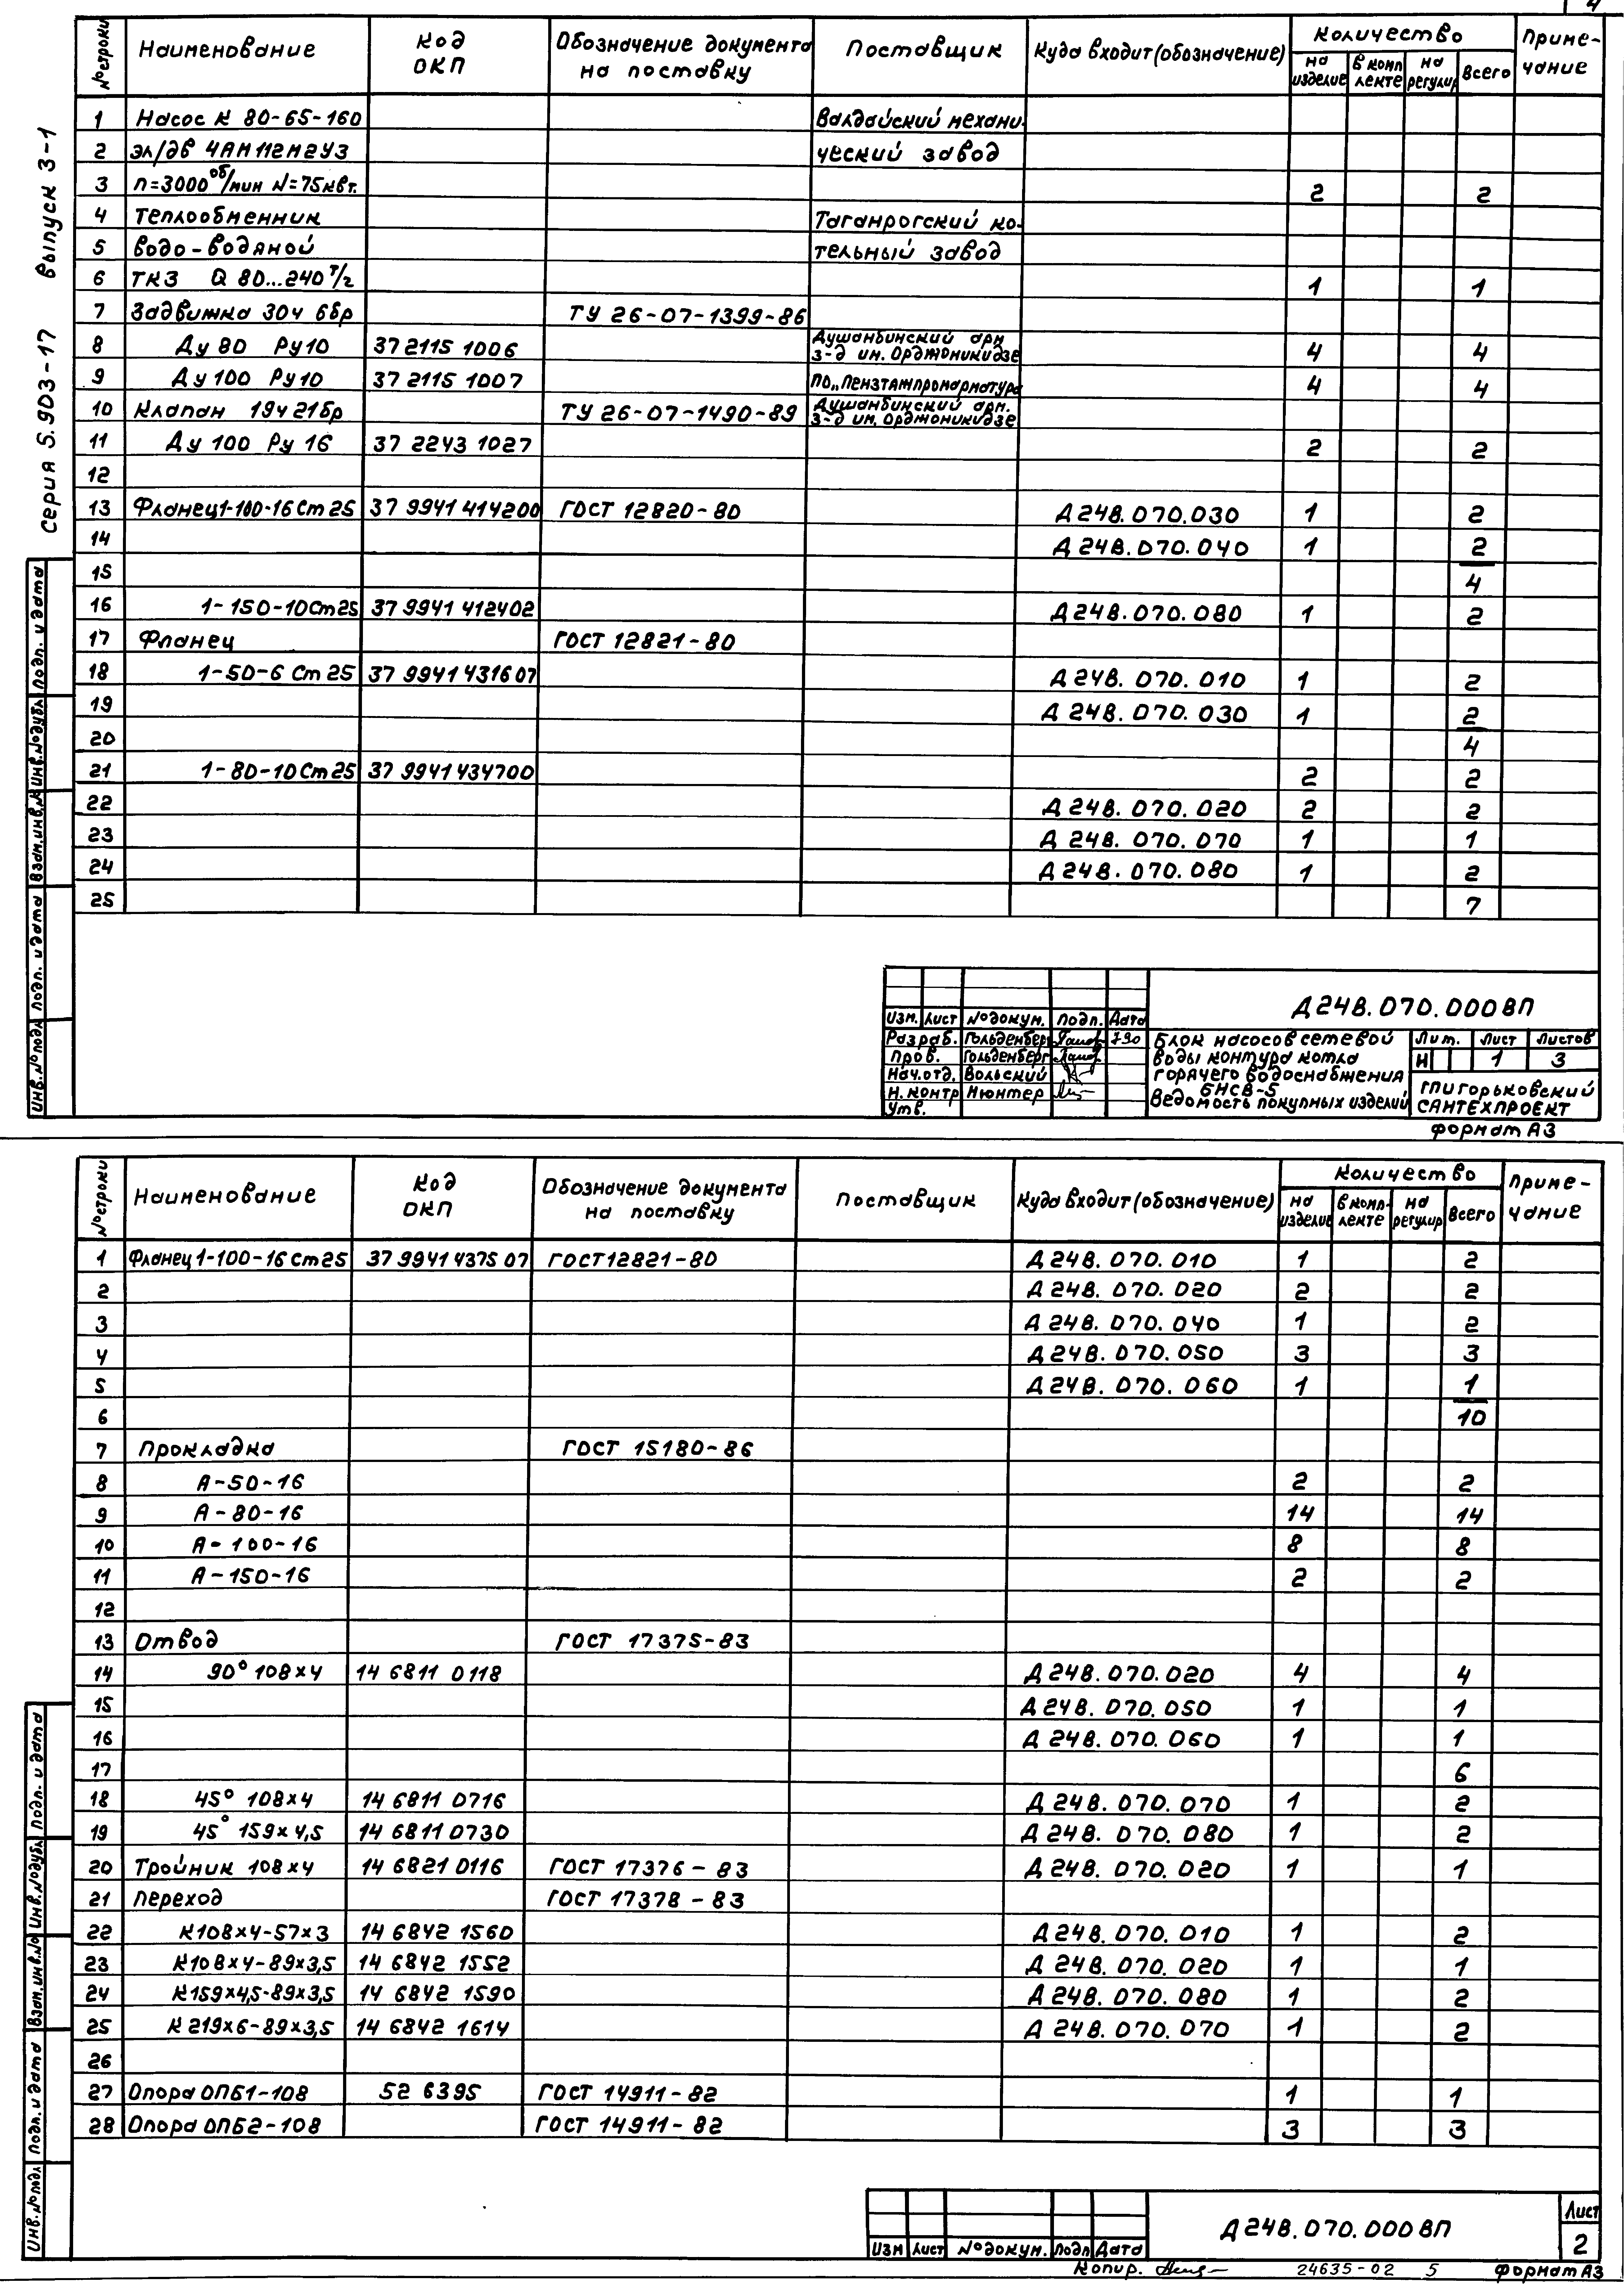 4
№ строки Наименование Код ОКП Обозначение документа на поставку Поставщик Куда входит (обозначение) Количество Приме-чание
на изделие в комп-лекте на регулир Всего
1 Насос К 80-65-160 Валдайский механи-
2 эл/дв 4АМ112М2У3 ческий завод
3 n=3000 об/мин N=75квт. 2 2
4 Теплообменник Таганрогский ко-
5 водо-водяной тельный завод
6 ТКЗ Q 80...240 т/г 1 1
7 Задвижка 30ч 6бр ТУ 26-07-1399-86
8 Ду 80 Ру10 37 2115 1006 Душанбинский арм. з-д им. Орджоникидзе 4 4
9 Ду100 Ру10 37 2115 1007 ПО „Пензтяжпромарматура 4 4
10 Клапан 19ч21бр ТУ 26-07-1490-89 Душанбинский арм. з-д им. Орджоникидзе
11 Ду 100 Ру 16 37 2243 1027 2 2
12
13 Фланец 1-100-16 Ст 25 37 9941 414200 ГОСТ 12820-80 Д24В.070.030 1 2
14 Д24В.070.040 1 2
15 4
16 1-150-10 Ст 25 37 9941 412402 Д24В.070.080 1 2
17 Фланец ГОСТ 12821-80
18 1-50-6 Ст 25 37 9941 431607 Д24В.070.010 1 2
19 Д24В.070.030 1 2
20 4
21 1-80-10 Ст 25 37 9941 434700 2 2
22 Д24В.070.020 2 2
23 Д24В.070.070 1 1
24 Д24В.070.080 1 2
25 7
Серия 5.903-17 Выпуск 3-1
Инв. № подл. Подп. и дата Взам. инв. № Инв. № дубл. Подп. и дата
Д24В.070.000ВП
Изм. Лист № докум. Подп. Дата
Разраб. Гольденберг 790
Пров. Гольденберг
Нач.отд. Вольский
Н.контр Мюнтер
Утв.
Блок насосов сетевой
воды контура котла
горячего водоснабжения
БНСВ-5
Ведомость покупных изделий
Лит. Лист Листов
Н 1 3
ГПИ Горьковский
САНТЕХПРОЕКТ
Формат А3
№ строки Наименование Код ОКП Обозначение документа на поставку Поставщик Куда входит (обозначение) Количество Приме-чание
на изделие в комп-лекте на регулир Всего
1 Фланец 1-100-16 Ст 25 37 9941 4375 07 ГОСТ 12821-80 Д24В.070.010 1 2
2 Д24В.070.020 2 2
3 Д24В.070.040 1 2
4 Д24В.070.050 3 3
5 Д24В.070.060 1 1
6 10
7 Прокладка ГОСТ 15180-86
8 А-50-16 2 2
9 А-80-16 14 14
10 А-100-16 8 8
11 А-150-16 2 2
12
13 Отвод ГОСТ 17375-83
14 90° 108×4 14 6811 0118 Д24В.070.020 4 4
15 Д24В.070.050 1 1
16 Д24В.070.060 1 1
17 6
18 45° 108×4 14 6811 0716 Д24В.070.070 1 2
19 45° 159×4,5 14 6811 0730 Д24В.070.080 1 2
20 Тройник 108×4 14 6821 0116 ГОСТ 17376-83 Д24В.070.020 1 1
21 Переход ГОСТ 17378-83
22 К108×4-57×3 14 6842 1560 Д24В.070.010 1 2
23 К108×4-89×3,5 14 6842 1552 Д24В.070.020 1 1
24 К159×4,5-89×3,5 14 6842 1590 Д24В.070.080 1 2
25 К219×6-89×3,5 14 6842 1614 Д24В.070.070 1 2
26
27 Опора ОПБ1-108 52 6395 ГОСТ 14911-82 1 1
28 Опора ОПБ2-108 ГОСТ 14911-82 3 3
Инв. № подл. Подп. и дата Взам. инв. № Инв. № дубл. Подп. и дата
Изм Лист № докум. Подп Дата
Д24В.070.000ВП
Лист
2
Копир. 24635-02 5 Формат А3